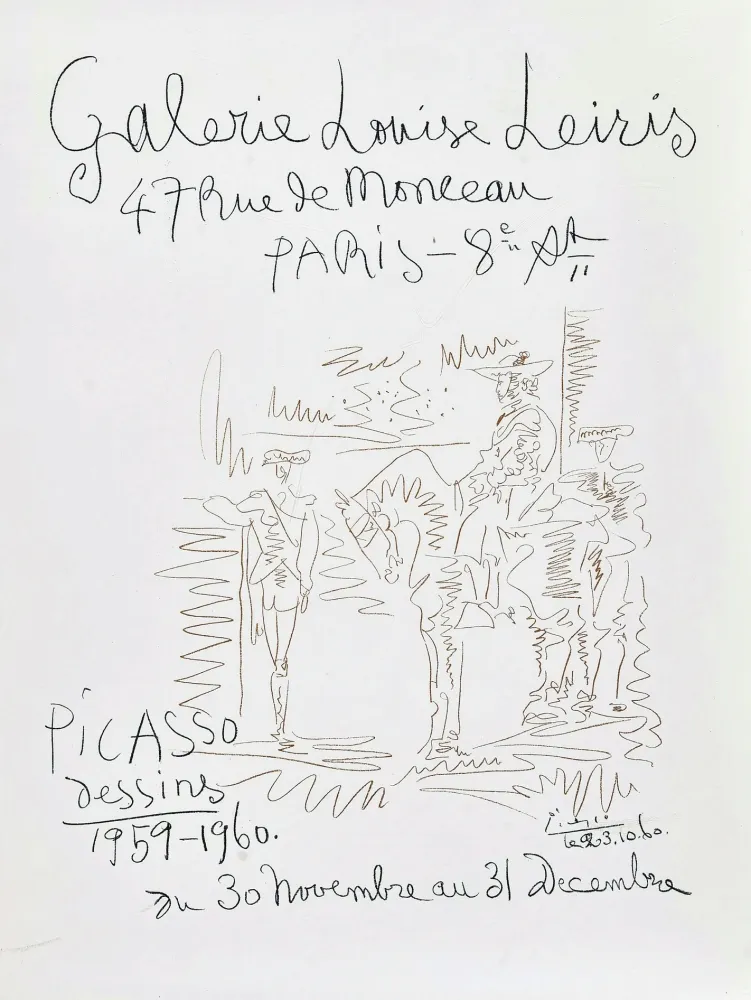 Galerie Louise Leiris
47 Rue de Monceau
PARIS – 8e Art
PICASSO
dessins
1959–1960.
Picasso
le 23.10.60.
du 30 novembre au 31 Decembre